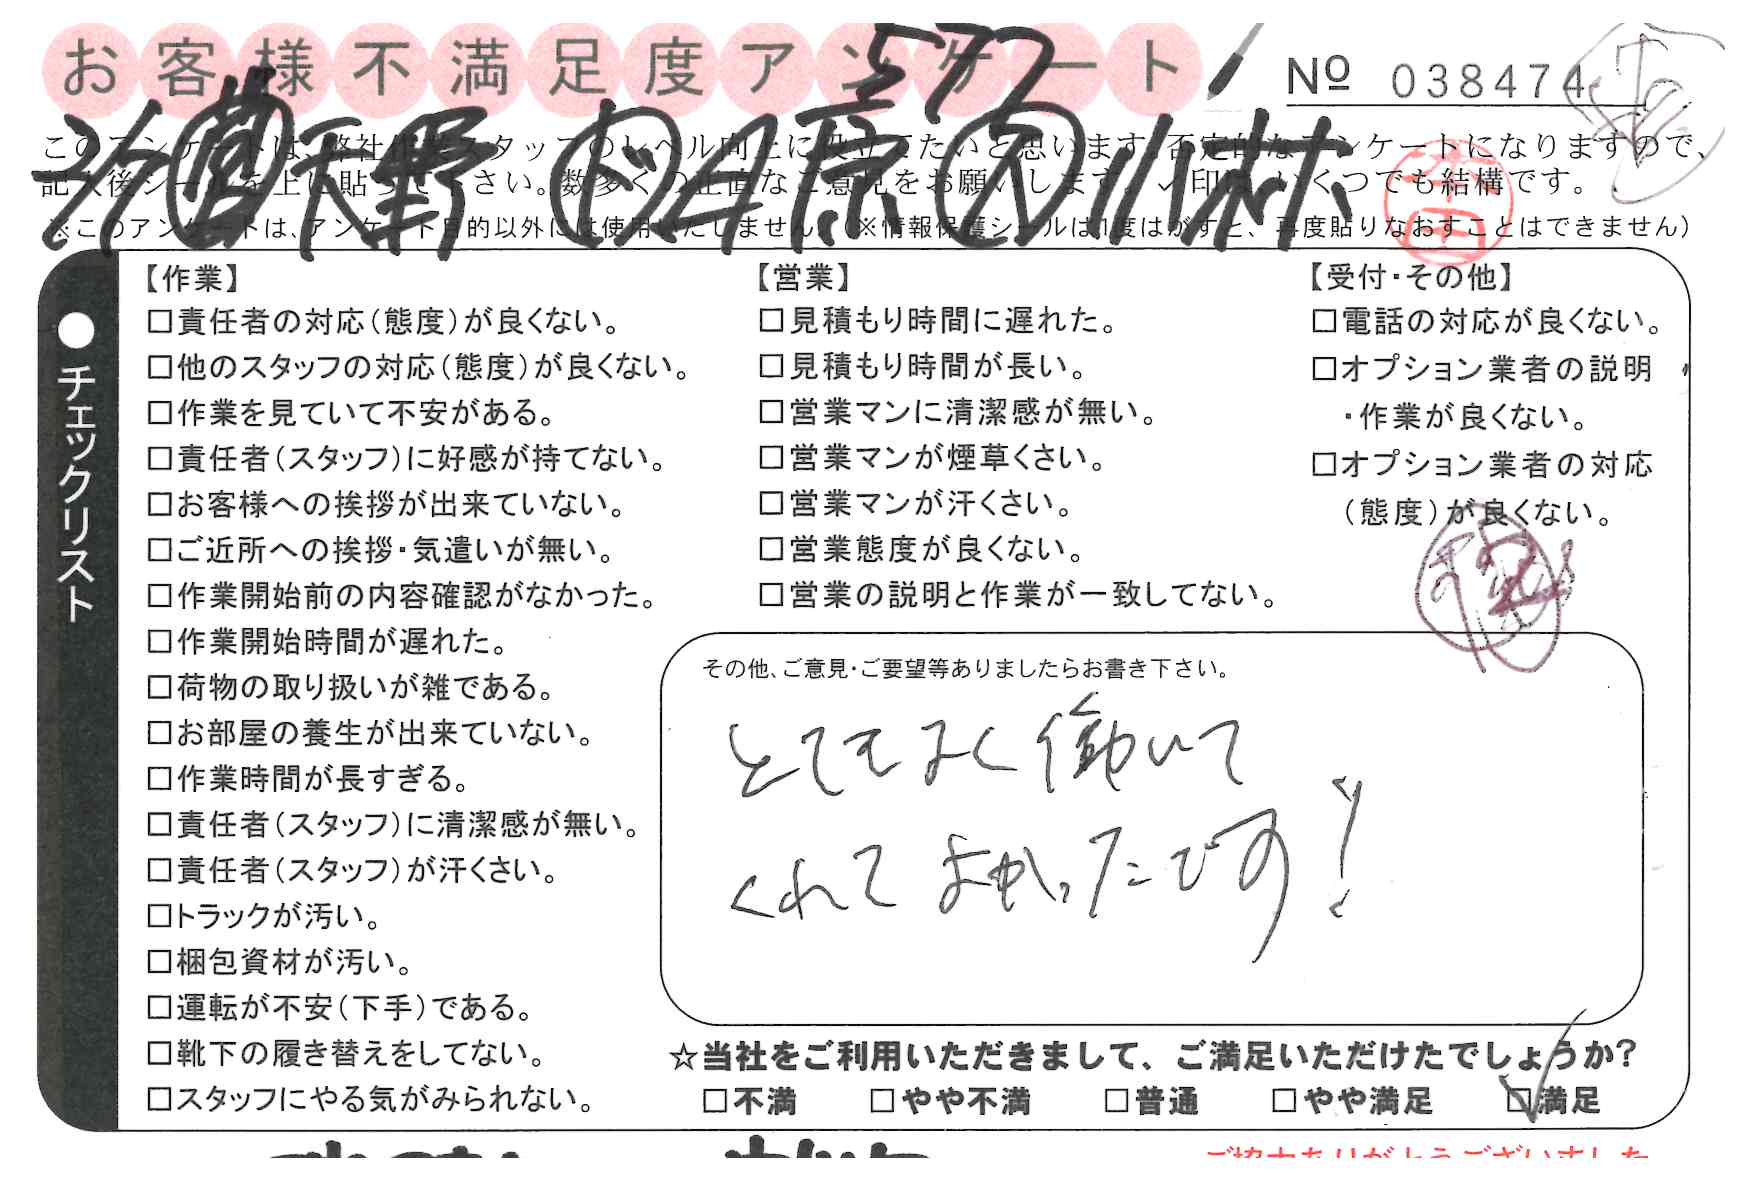 お客様不満足度アンケート
№ 038474
577
2/6 営 天野 作 月原 内 小林
このアンケートは、弊社作業スタッフのレベル向上に役立てたいと思います。否定的なアンケートになりますので、
記入後シールを上に貼って下さい。数多くの正直なご意見をお願いします。✓印は、いくつでも結構です。
※このアンケートは、アンケート目的以外には使用いたしません。(※情報保護シールは1度はがすと、再度貼りなおすことはできません)
●チェックリスト
【作業】
□責任者の対応(態度)が良くない。
□他のスタッフの対応(態度)が良くない。
□作業を見ていて不安がある。
□責任者(スタッフ)に好感が持てない。
□お客様への挨拶が出来ていない。
□ご近所への挨拶・気遣いが無い。
□作業開始前の内容確認がなかった。
□作業開始時間が遅れた。
□荷物の取り扱いが雑である。
□お部屋の養生が出来ていない。
□作業時間が長すぎる。
□責任者(スタッフ)に清潔感が無い。
□責任者(スタッフ)が汗くさい。
□トラックが汚い。
□梱包資材が汚い。
□運転が不安(下手)である。
□靴下の履き替えをしてない。
□スタッフにやる気がみられない。
【営業】
□見積もり時間に遅れた。
□見積もり時間が長い。
□営業マンに清潔感が無い。
□営業マンが煙草くさい。
□営業マンが汗くさい。
□営業態度が良くない。
□営業の説明と作業が一致してない。
【受付・その他】
□電話の対応が良くない。
□オプション業者の説明
・作業が良くない。
□オプション業者の対応
(態度)が良くない。
その他、ご意見・ご要望等ありましたらお書き下さい。
とてもよく働いて
くれてよかったです!
☆当社をご利用いただきまして、ご満足いただけたでしょうか?
□不満 □やや不満 □普通 □やや満足 ☑満足
ご協力ありがとうございました